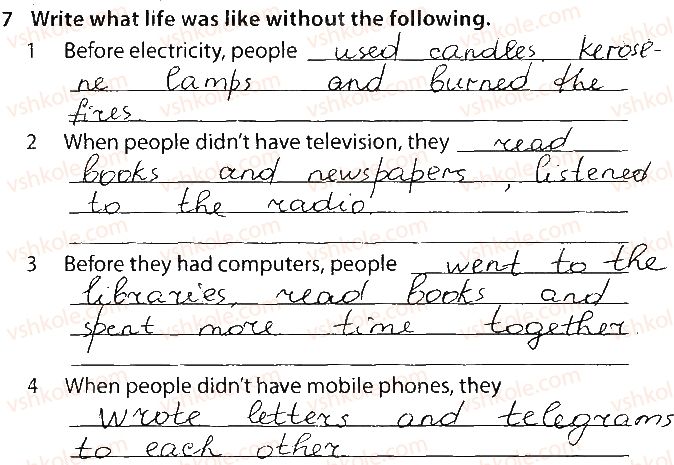 7 Write what life was like without the following.
1 Before electricity, people used candles, kerose-
ne lamps and burned the
fires.
2 When people didn't have television, they read
books and newspapers, listened
to the radio.
3 Before they had computers, people went to the
libraries, read books and
spent more time together.
4 When people didn't have mobile phones, they
wrote letters and telegrams
to each other